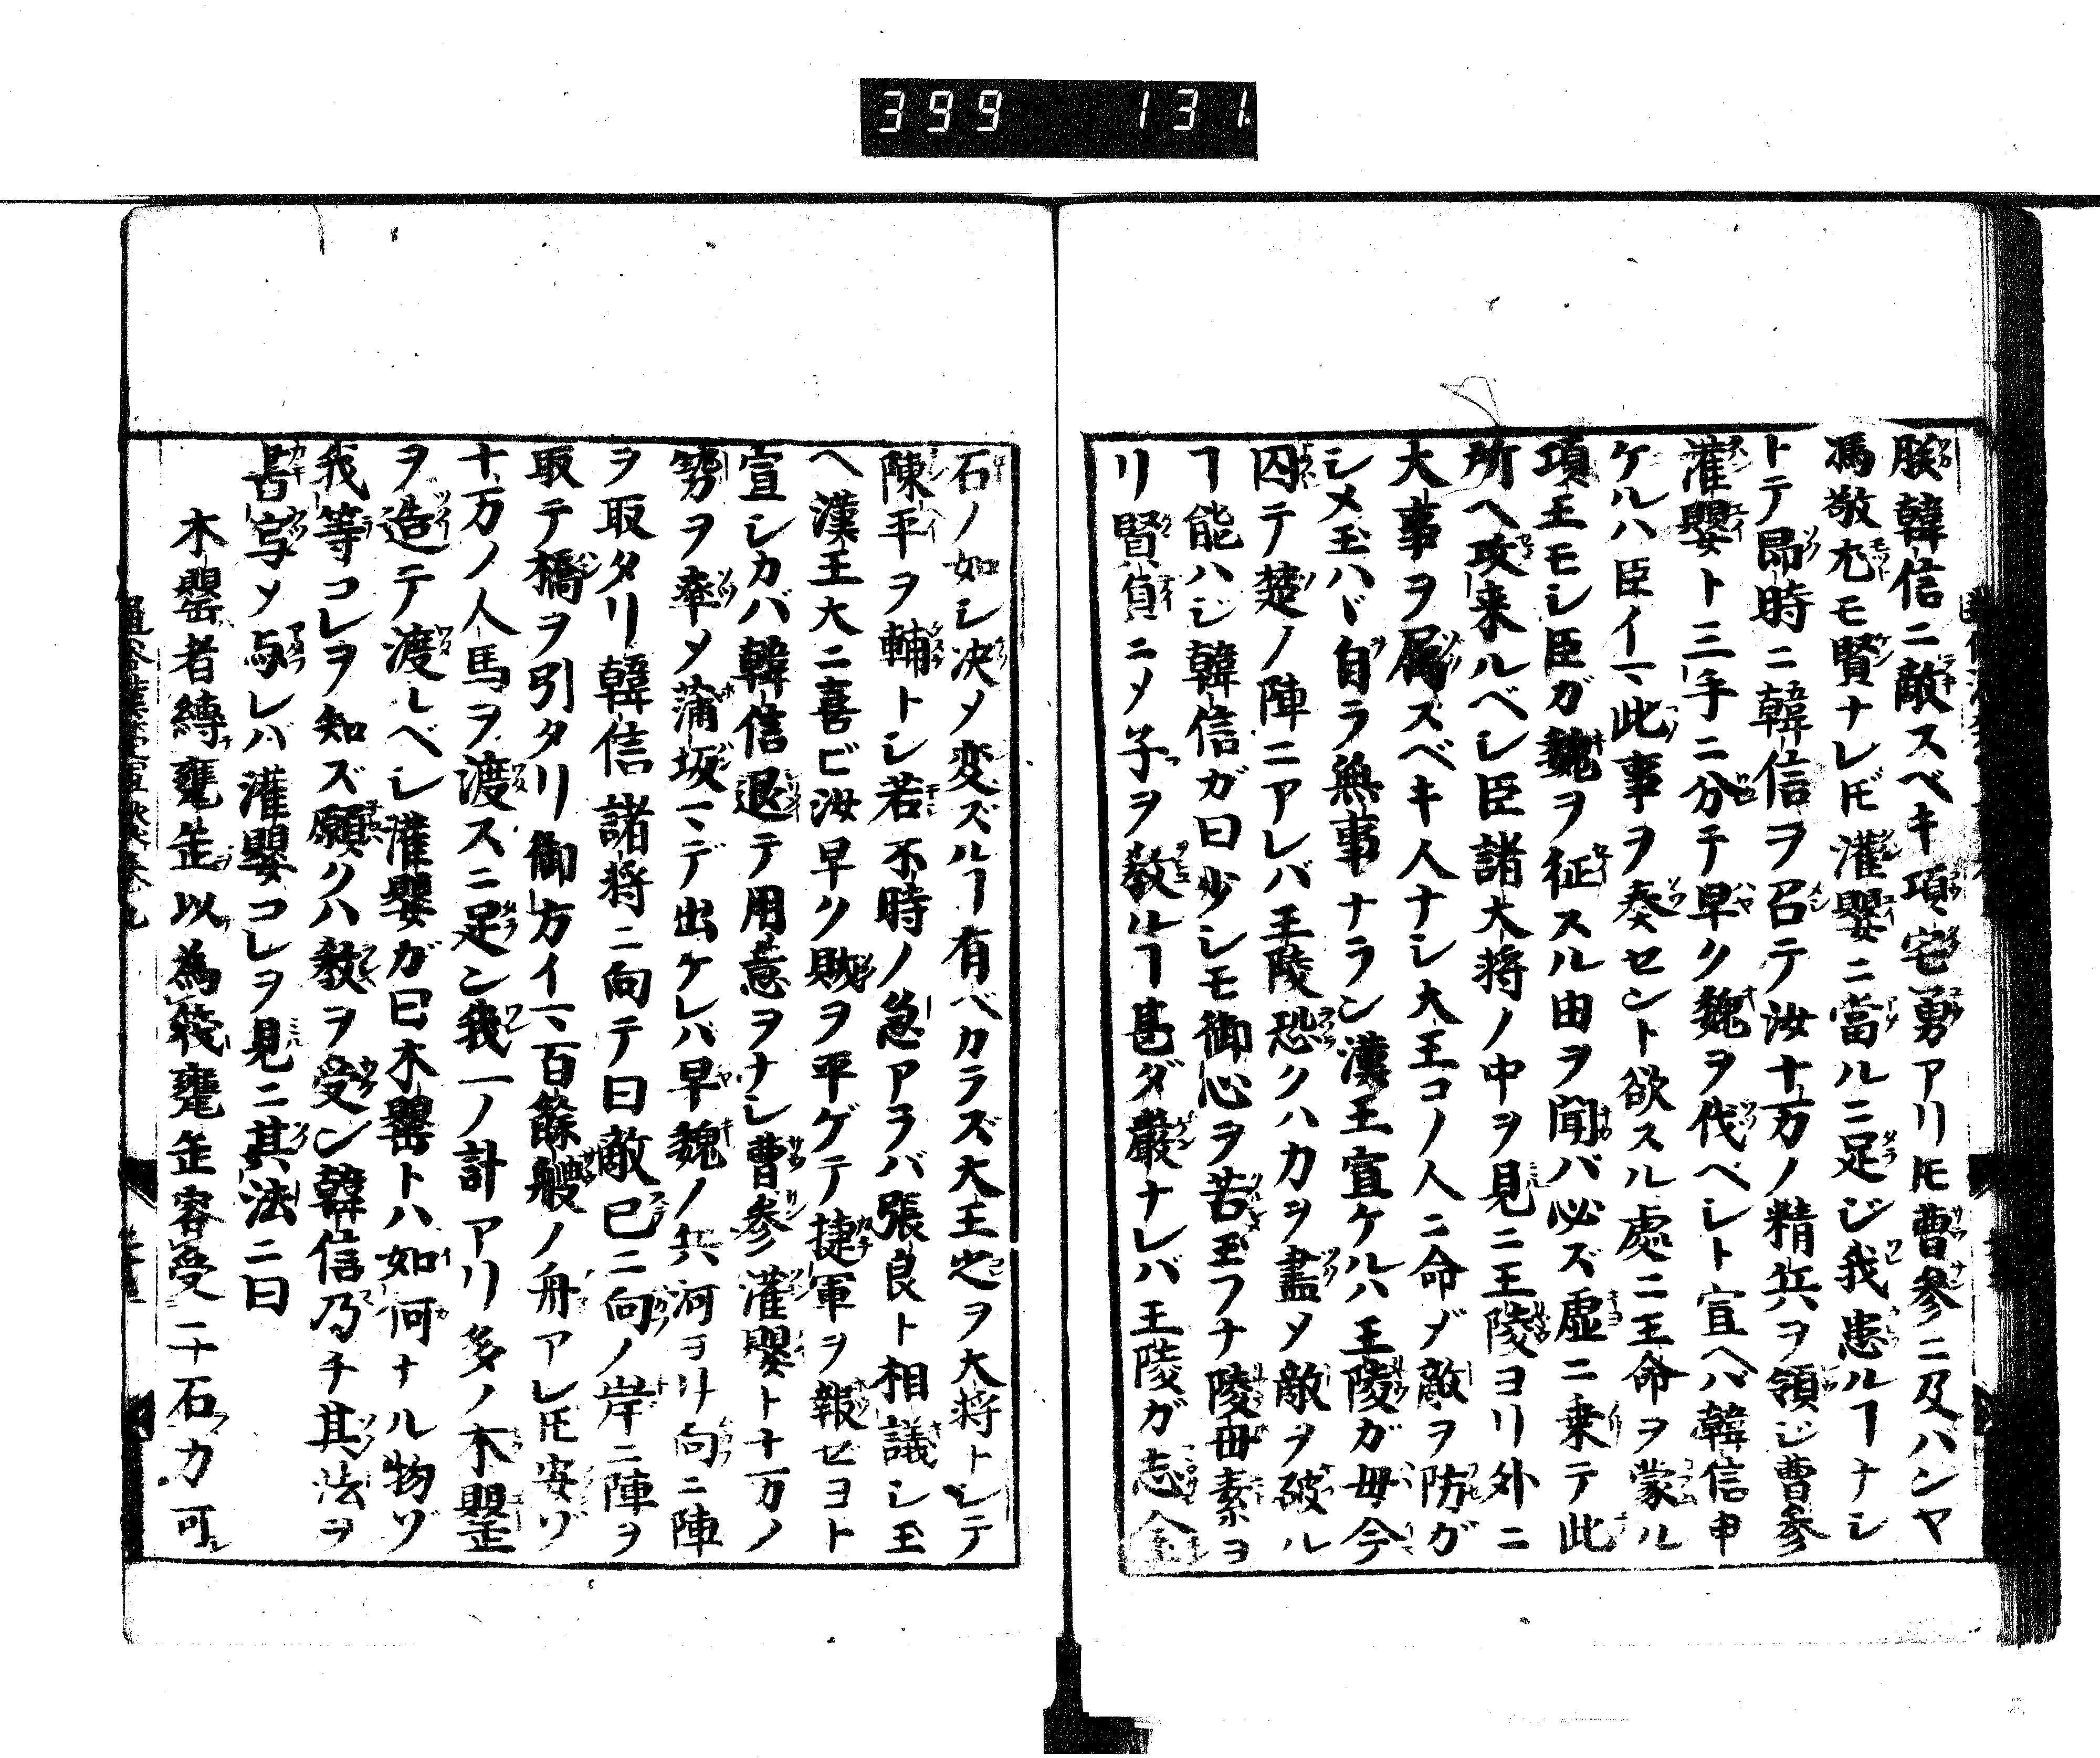 399 131
朕韓信ニ敵スベキ項宅勇アリㇳモ曹参ニ及ハンヤ
馮敬尤モ賢ナレㇳモ灌嬰ニ當ルニ足ジ我患ルヿナシ
トテ即時ニ韓信ヲ召テ汝十万ノ精兵ヲ領ジ曹参
灌嬰ト三手ニ分テ早ク魏ヲ伐ベレト宣ヘバ韓信申
ケルハ臣イマ此事ヲ奏セント欲スル處ニ王命ヲ蒙ル
項王モシ臣ガ魏ヲ征スル由ヲ聞バ必ズ虚ニ乗テ此
所ヘ攻来ルベレ臣諸大将ノ中ヲ見ニ王陵ヨリ外ニ
大事ヲ属スベキ人ナシ大王コノ人ニ命ゾ敵ヲ防ガ
シメ玉ハヾ自ラ無事ナラン漢王宣ケルハ王陵ガ毋今
囚テ楚ノ陣ニアレバ王陵恐クハカヲ盡メ敵ヲ破ル
ヿ能ハジ韓信ガ曰少シモ御心ヲ苦玉フナ陵毋素ヨ
リ賢貞ニメ子ヲ教ルヿ甚ダ嚴ナレバ王陵ガ志金
石ノ如シ决メ変ズルヿ有ベカラズ大王之ヲ大将トレテ
陳平ヲ輔トシ若不時ノ急アラバ張良ト相議シ玉
ヘ漢王大ニ喜ビ汝早ク敗ヲ平ゲテ捷軍ヲ報ゼヨト
宣シカバ韓信退テ用意ヲナシ曹参灌嬰ト十万ノ
勢ヲ率メ蒲坂マデ出ケレハ早魏ノ兵河ヨリ向ニ陣
ヲ取タリ韓信諸将ニ向テ曰敵已ニ向ノ岸ニ陣ヲ
取テ橋ヲ引タリ御方イマ百餘艘ノ舟アレㇳモ安ゾ
十万ノ人馬ヲ渡スニ足ン我一ノ計アリ多ノ木罌
ヲ造テ渡レベシ灌嬰ガ曰木罌トハ如何ナル物ゾ
我等コレヲ知ズ願クハ教ヲ受ン韓信乃チ其法ヲ
書写メ与レバ灌嬰コレヲ見ニ其法ニ曰
木罌者縛甕缶以為筏甕缶容受二十石力可